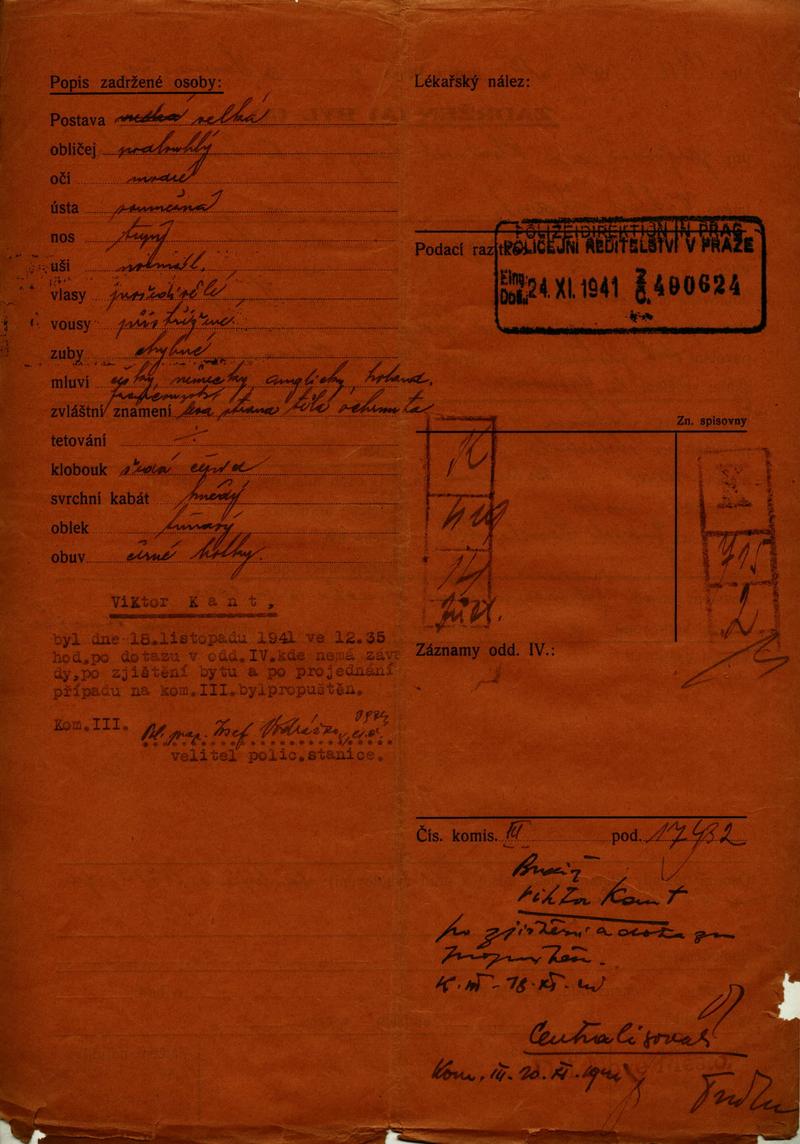 Popis zadržené osoby:
Postava velká
obličej podlouhlý
oči modré
ústa souměrná
nos tupý
uši normál.
vlasy prošedivělé
vousy přistřižené
zuby chybné
mluví česky, německy, anglicky, holand.
francouzsky
zvláštní znamení levá strana těla ochrnutá
tetování ÷
klobouk šedá čepice
svrchní kabát hnědý
oblek tmavý
obuv černé botky.
Viktor K a n t ,
byl dne 18.listopadu 1941 ve 12.35
hod.po dotazu v odd.IV.kde nemá záva
dy,po zjištění bytu a po projednání
případu na kom.III.bylpropuštěn.
Kom.III. Josef
velitel polic.stanice.
Lékařský nález:
Podací razítko
POLIZEIDIREKTION IN PRAG
POLICEJNÍ ŘEDITELSTVÍ V PRAZE
Eing.
Doš. 24. XI. 1941 Z/Č. 400624
Zn. spisovny
K
429
14
715
2
Záznamy odd. IV.:
Čís. komis. III pod. 17932
Viktor Kant
po zjištění a dotazu
propuštěn.
K. III - 18. XI.
Centralisovat
Kom. III. 20. XI. 1941